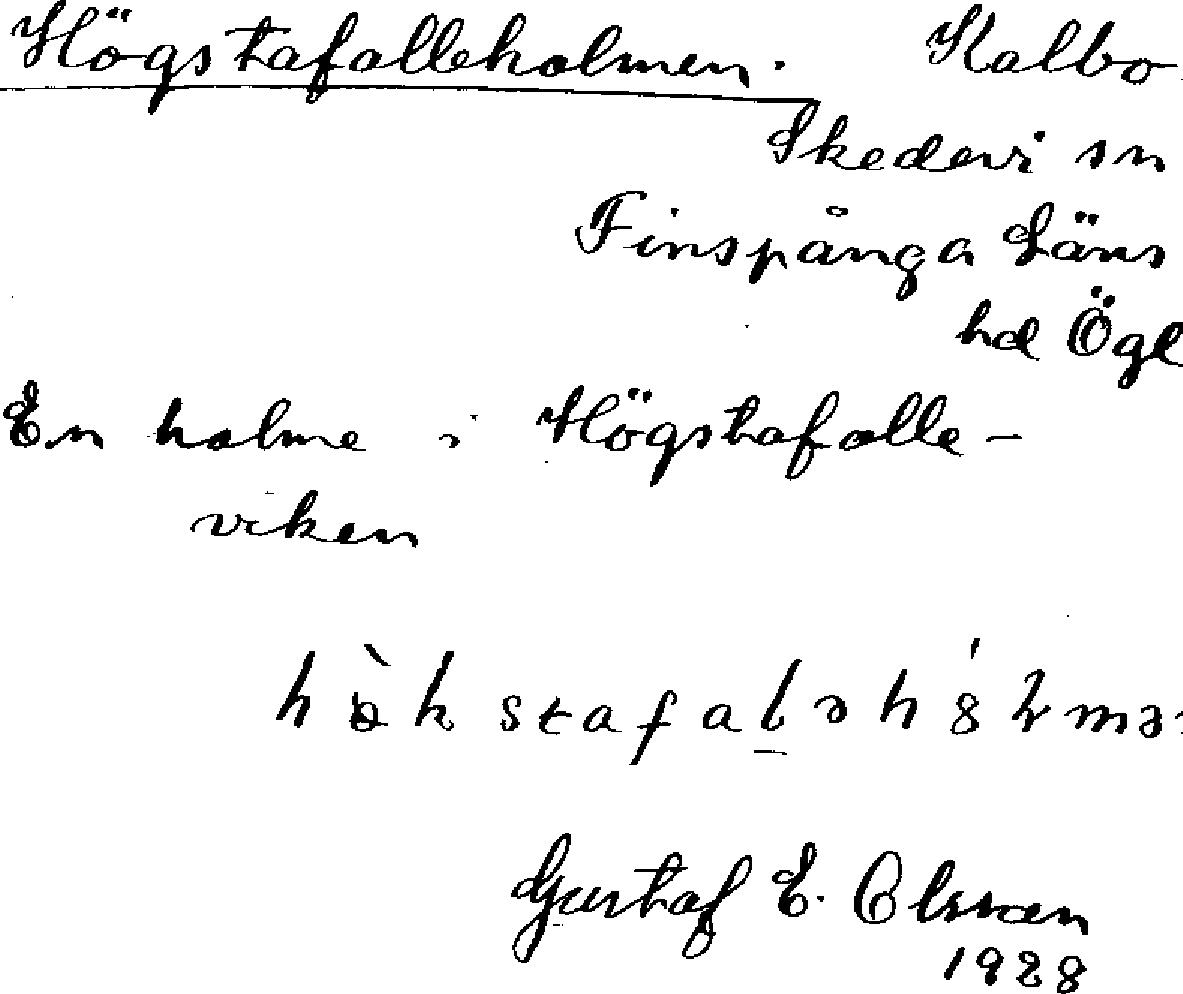 Högstafalleholmen. Kalbo
Skedevi sn
Finspånga Läns
hd Ögl
En holme i Högstafalle-
viken
Gustaf E. Olsson
1928